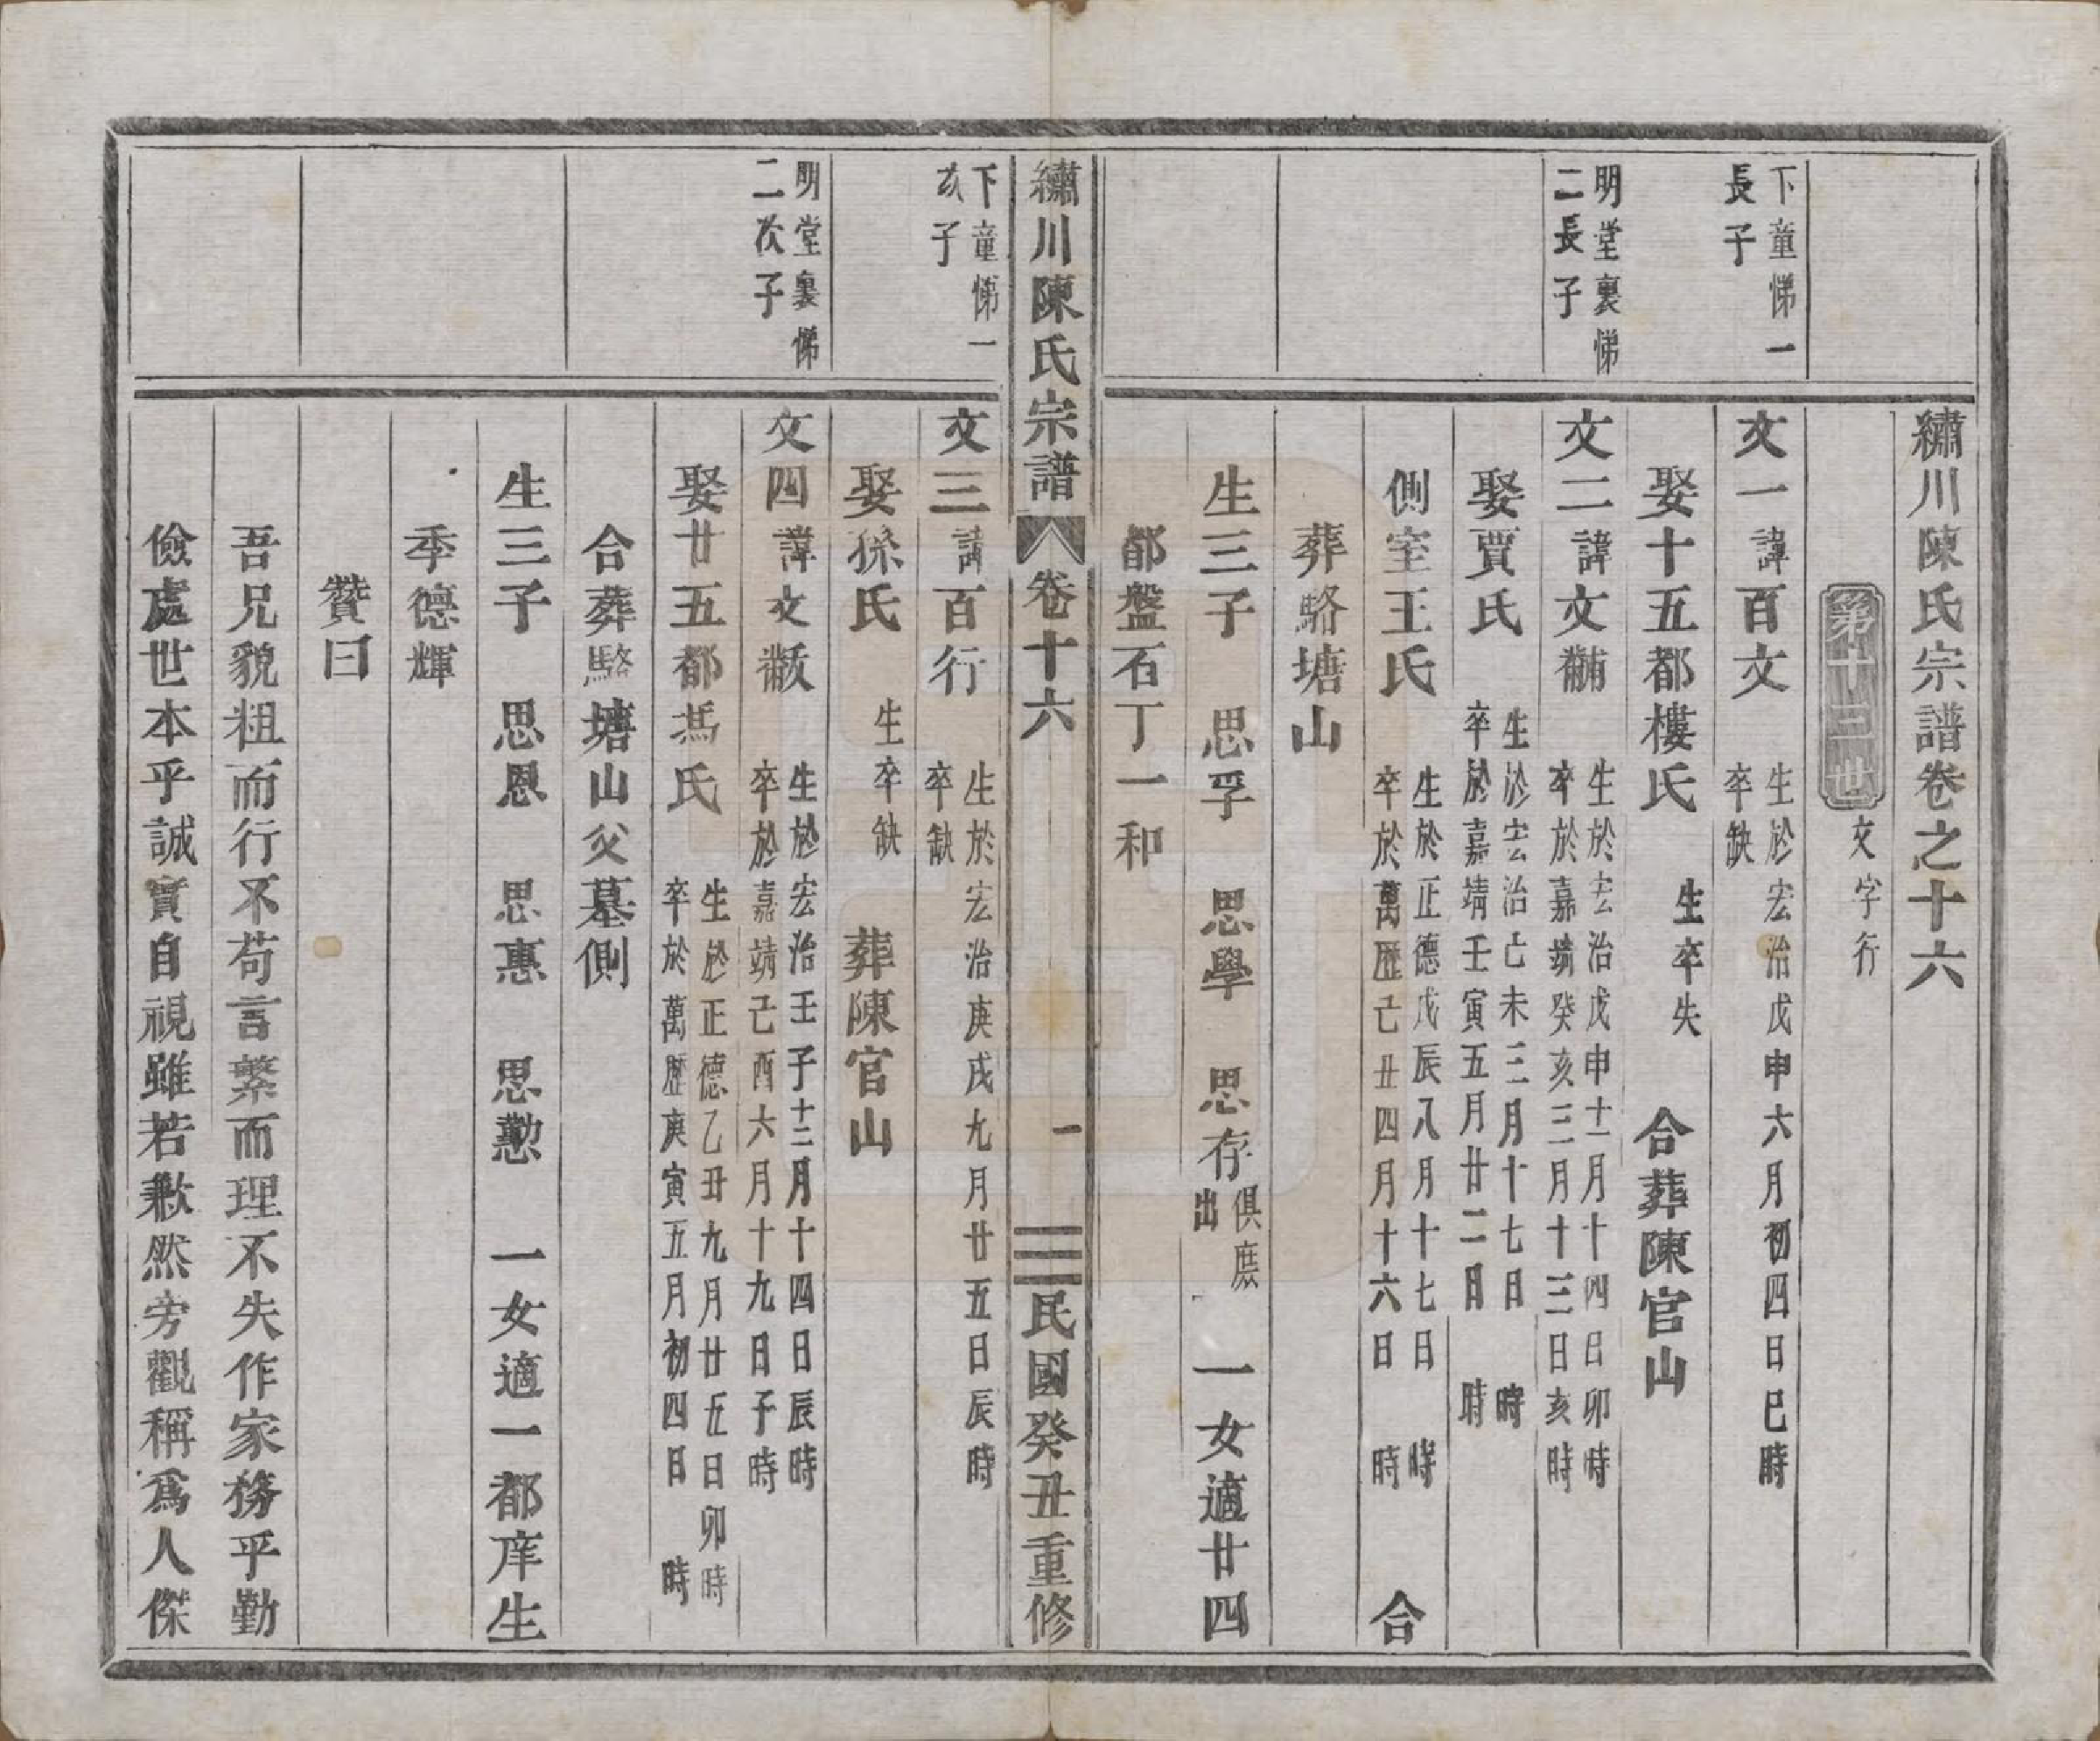 繡川陳氏宗譜卷之十六
第十三世
文字行
下童悌一
長子
文一諱百文
生於宏治戊申六月初四日巳時
卒缺
娶十五都樓氏
生卒失
合葬陳官山
明堂裏悌
二長子
文二諱文黼
生於宏治戊申十一月十四日卯時
卒於嘉靖癸亥三月十三日亥時
娶賈氏
生於宏治己未三月十七日 時
卒於嘉靖壬寅五月廿二日 時
側室王氏
生於正德戊辰八月十七日 時
卒於萬歷己丑四月十六日 時
合
葬駱塘山
生三子 思孚 思學 思存
俱庶
出
一女適廿四
都盤石丁一和
繡川陳氏宗譜 卷十六 一 民國癸丑重修
下童悌一
次子
文三諱百行
生於宏治庚戌九月廿五日辰時
卒缺
娶孫氏
生
卒缺
葬陳官山
明堂裏悌
二次子
文四諱文黻
生於宏治壬子十二月十四日辰時
卒於嘉靖己酉六月十九日子時
娶廿五都馮氏
生於正德乙丑九月廿五日卯時
卒於萬歷庚寅五月初四日 時
合葬駱塘山父墓側
生三子 思恩 思惠 思懃 一女適一都庠生
季德輝
贊曰
吾兄貌粗而行不苟言繁而理不失作家務乎勤
儉處世本乎誠實自視雖若歉然旁觀稱爲人傑